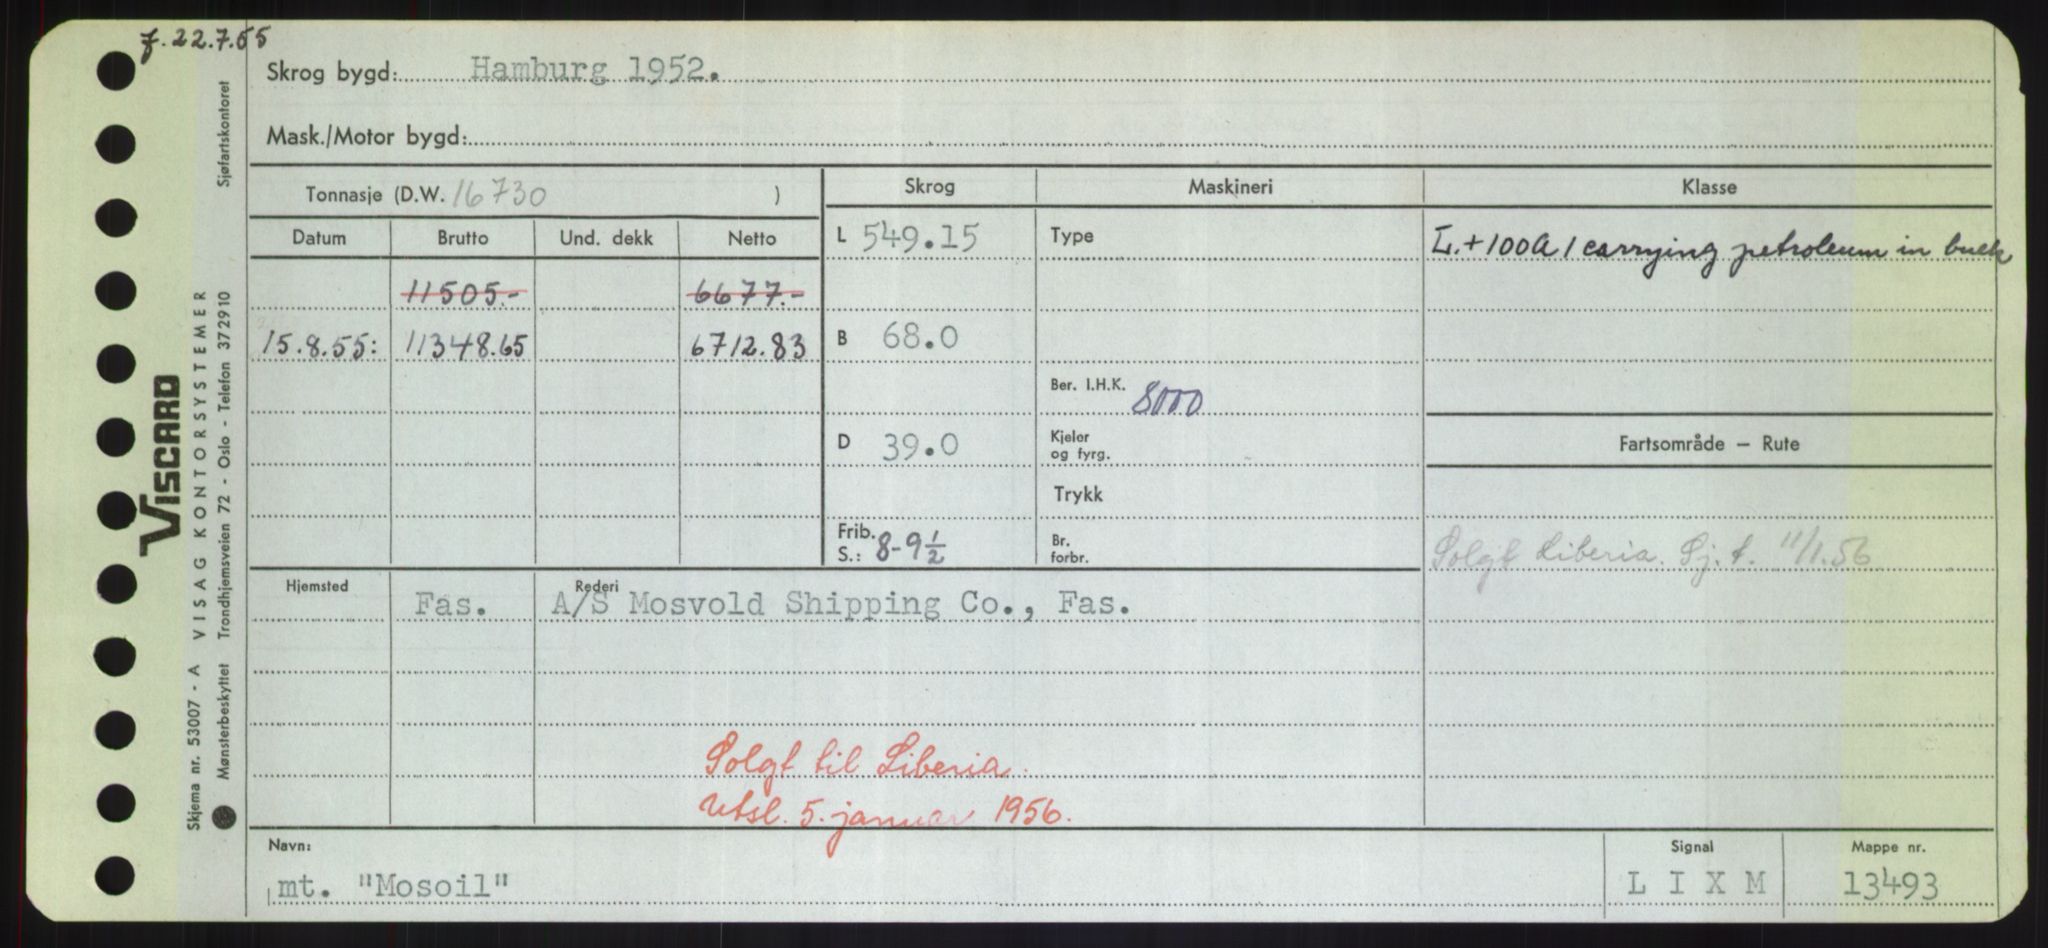 f. 22.7.55
Skrog bygd: Hamburg 1952.
Mask./Motor bygd:
Tonnasje (D.W. 16730 )
Skrog Maskineri Klasse
Datum Brutto Und. dekk Netto
L 549.15 Type L.+100A1 carrying petroleum in bulk
11505.- 6677.-
15.8.55: 11348.65 6712.83 B 68.0
Ber. I.H.K. 8000
D 39.0 Kjeler og fyrg. Fartsområde – Rute
Trykk
Frib. S.: 8-9½ Br. forbr. Solgt Liberia. Sj.t. 11/1.56
Hjemsted Fas. Rederi A/S Mosvold Shipping Co., Fas.
Solgt til Liberia.
Utsl. 5. januar 1956.
Navn: Signal Mappe nr.
mt. "Mosoil" L I X M 13493
Skjema nr. 53007 - A VISAG KONTORSYSTEMER
Mønsterbeskyttet Trondhjemsveien 72 - Oslo - Telefon 372910 Sjøfartskontoret
VISCARD